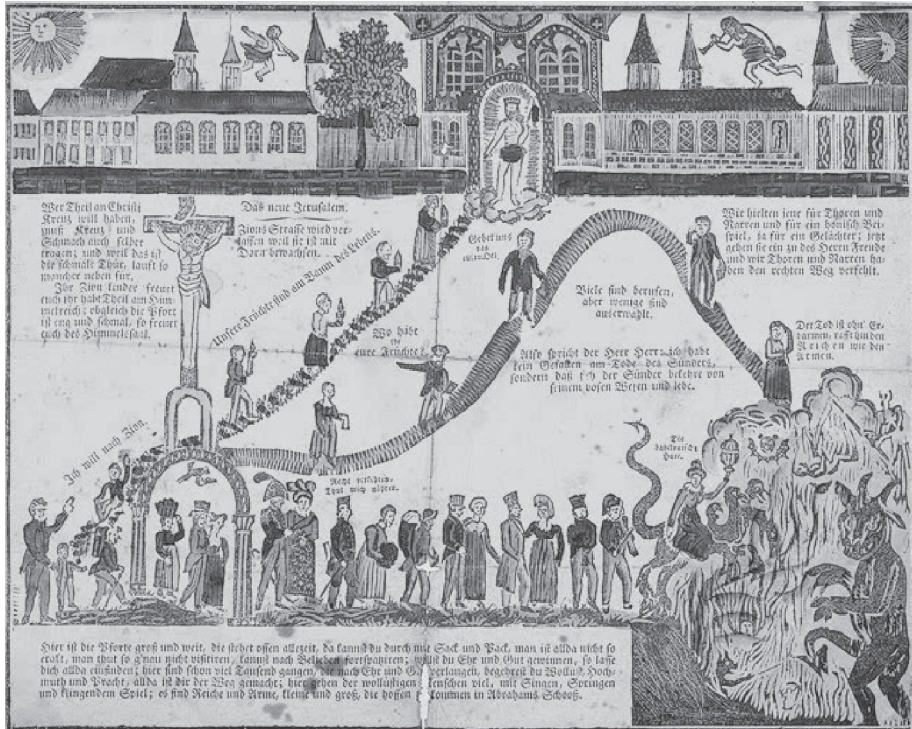 Wer Theil an Christi
Kreuz will haben,
muß Kreuz und
Schmach auch selber
tragen; und weil das ist
die schmale Thür, lauft so
mancher neben für.
Ihr Zion kinder freuet
euch ihr habt Theil am Him-
melreich; obgleich die Pfort
ist eng und schmal, so freuet
euch des Himmelssaal.
Das neue Jerusalem.
Zions Strasse wird ver-
lassen weil sie ist mit
Dorn bewachsen.
Unsere Früchte sind am Baum des Lebens.
Gebet uns
von
eurem Oel.
Wo habt
ihr
eure Früchte?
Viele sind berufen,
aber wenige sind
auserwählt.
Wir hielten jene für Thoren und
Narren und für ein hönisch Bei-
spiel, ja für ein Gelächter; jetzt
gehen sie ein zu des Herrn Freude
und wir Thoren und Narren ha-
ben den rechten Weg verfehlt.
Also spricht der Herr Herr: ich habe
kein Gefallen am Tode des Sünders,
sondern daß sich der Sünder bekehre von
seinem bösen Wesen und lebe.
Der Tod ist ohn' Er-
barmen, rafft hin den
Reichen wie den
Armen.
Ich will nach Zion.
Recht verachten
Thut mich
Die
babylonische
Hure.
Hier ist die Pforte groß und weit, die stehet offen allezeit, da kannst du durch mit Sack und Pack, man ist allda nicht so
exakt, man thut so g'nau nicht visitiren, kannst nach Belieben fortspaziren; willst du Ehr und Gut gewinnen, so lasse
dich allda einfinden; hier sind schon viel Tausend gangen, die nach Ehr und Gut verlangen, begehrest du Wollust, Hoch-
muth und Pracht, allda ist dir der Weg gemacht; hier gehen der wollustigen Menschen viel, mit Singen, Springen
und klingendem Spiel; es sind Reiche und Arme, kleine und groß, die hoffen zu kommen in Abrahams Schooß.